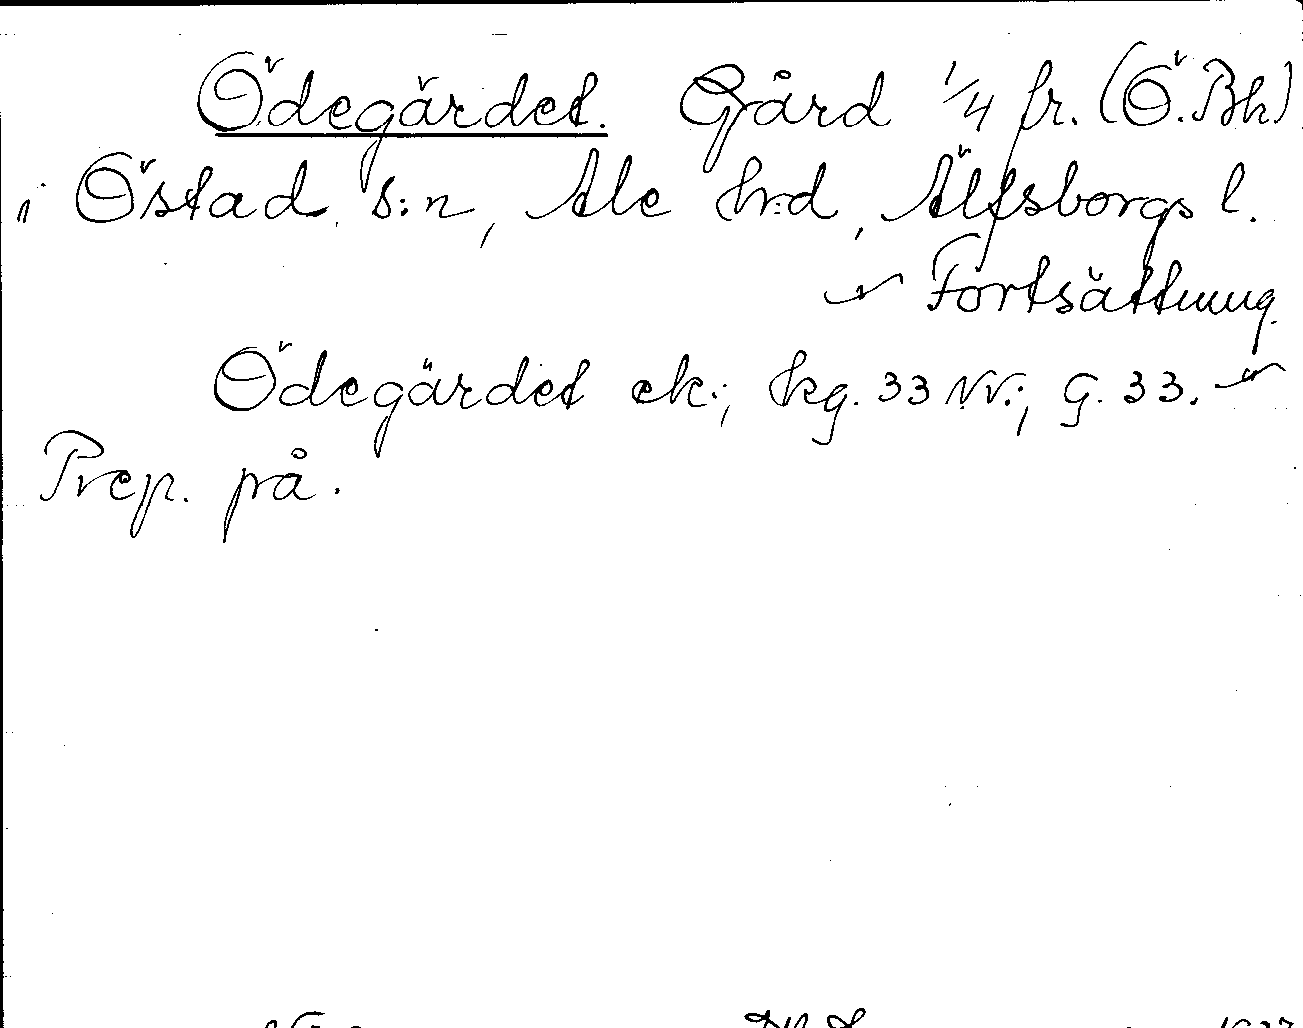 Ödegärdet. Gård 1/4 fr. (Ö.Bh)
i Östad s:n, Ale hrd, Älfsborgs l.
Fortsättning
Ödegärdet ek.; kg. 33 NV.; G. 33.
Prep. på.